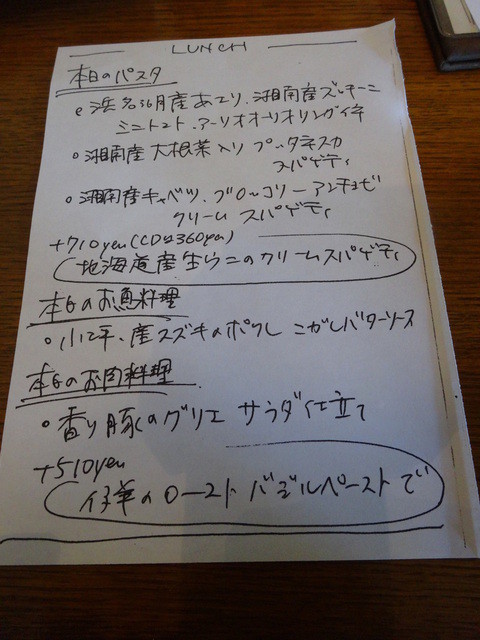 LUNCH
本日のパスタ
浜名湖産あさり、湘南産ズッキーニ
ミニトマト、アーリオオーリオリングイネ
湘南産 大根葉入り プッタネスカ
スパゲティ
湘南産キャベツ、ブロッコリーアンチョビ
クリーム スパゲティ
+710yen(CDは360yen)
北海道産生ウニのクリームスパゲティ
本日のお魚料理
産スズキのポワレ こがしバターソース
本日のお肉料理
香り豚のグリエ サラダ仕立て
+510yen
仔羊のロースト バジルペーストで